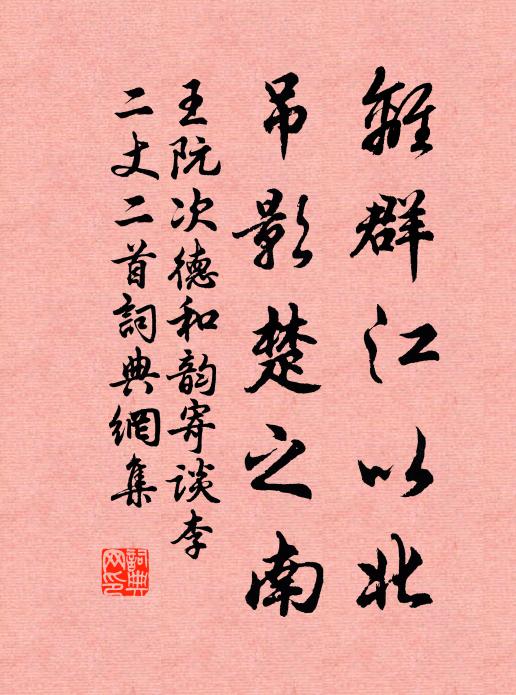 離群江以北
吊影楚之南
王阮次德和韵寄谈李
二丈二首詞典網集
詞典
网印